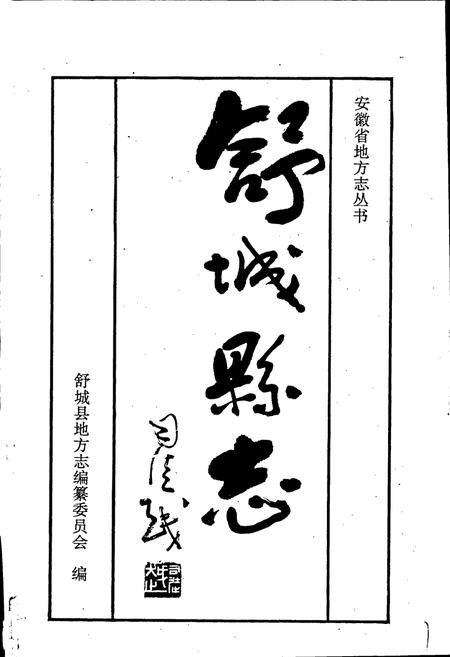 安徽省地方志丛书
舒城縣志
舒城县地方志编纂委员会 编